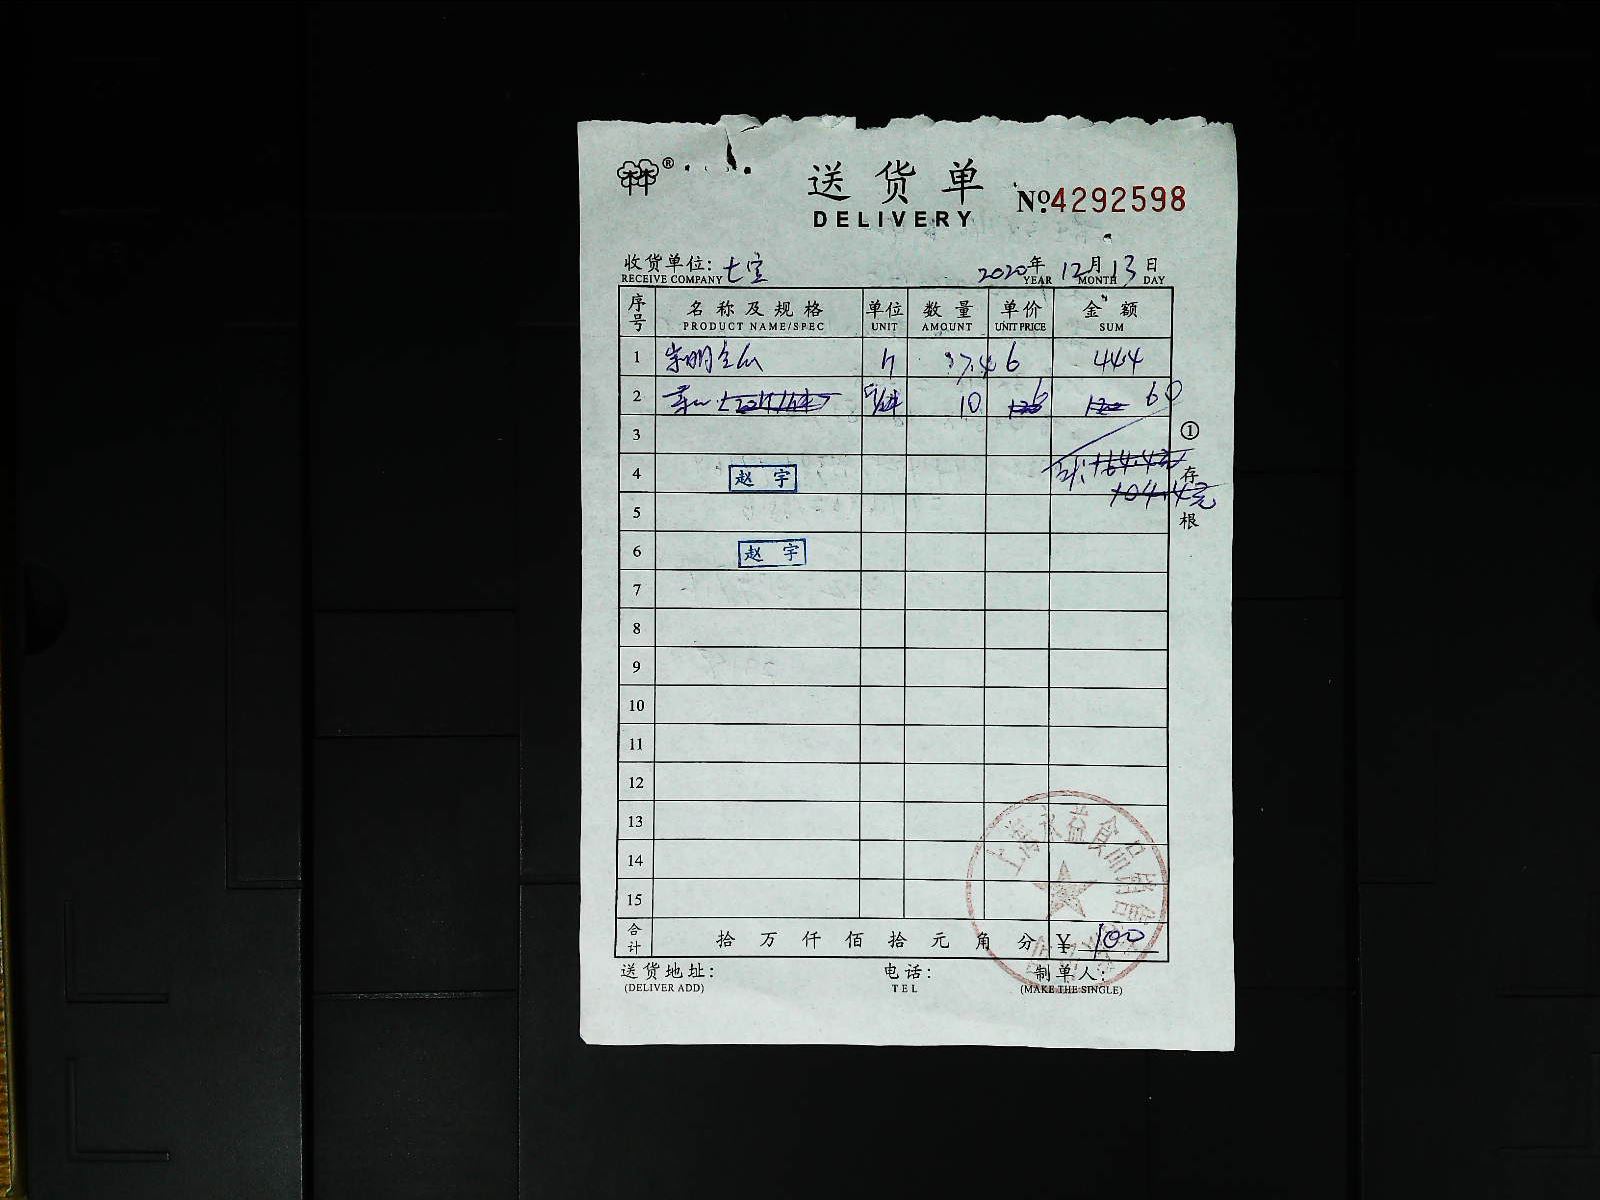 送货单
DELIVERY
№4292598
收货单位: 七宝 2020年 12月 13日
RECEIVE COMPANY YEAR MONTH DAY
序号 名称及规格 单位 数量 单价 金额
PRODUCT NAME/SPEC UNIT AMOUNT UNIT PRICE SUM
1 崇明 6 444
2 10 6 60
3
①
4 赵宇 164.4元 存
104.4元
5 根
6 赵宇
7
8
9
10
11
12
13
14
15
上海永益食品销售
合计 拾万仟佰拾元角分 ¥ 100
送货地址: 电话: 制单人:
(DELIVER ADD) TEL (MAKE THE SINGLE)